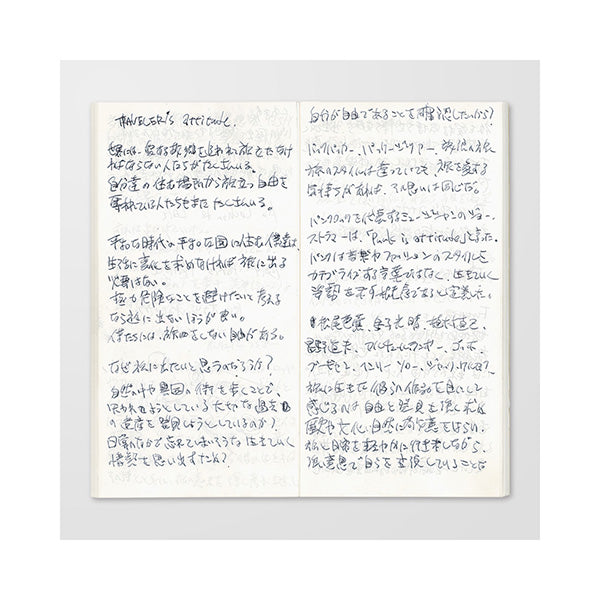 TRAVELER's attitude
世界には、愛する故郷を追われ旅立たなけ
ればならない人たちがたくさんいる。
自分達の住む場所から旅立つ自由を
奪われている人たちもまたたくさんいる。
平和な時代の平和な国に住む僕達は、
生活に変化を求めなければ旅に出る
必要はない。
極力危険なことを避けたいと考える
なら旅に出ないほうが良い。
僕たちには、旅をしない自由がある。
なぜ旅に出たいと思うのだろうか？
自然の中や異国の街を歩くことで、
失われようとしている大切な過去
の遺産を発見しようとしているのか？
日常のなかで忘れてしまいそうな生きていく
情熱を思い出すため？
自分が自由であることを確認したいから？
バックパッカー、パッケージツアー、旅
旅のスタイルは違っていても、旅を愛する
気持ちがあれば、その思いは同じだ。
パンクロックを代表するミュージシャンのジョー・
ストラマーは、「Punk is attitude」と言った。
パンクは音楽やファッションのスタイルを
カテゴライズする言葉ではなく、生きていく
姿勢を示す態度であると定義した。
松尾芭蕉、金子光晴、植村直己、
星野道夫、ブルース・チャトウィン、ゴッホ、
ゴーギャン、ヘンリー・ソロー、ジャック・ケルアック
旅に生きた彼らの作品を目にして
感じるのは自由と発見を強く求め
歴史や文化、自然に敬意をはらい、
旅と日常を軽やかに行き来しながら、
強い意思で自らを表現していることだ